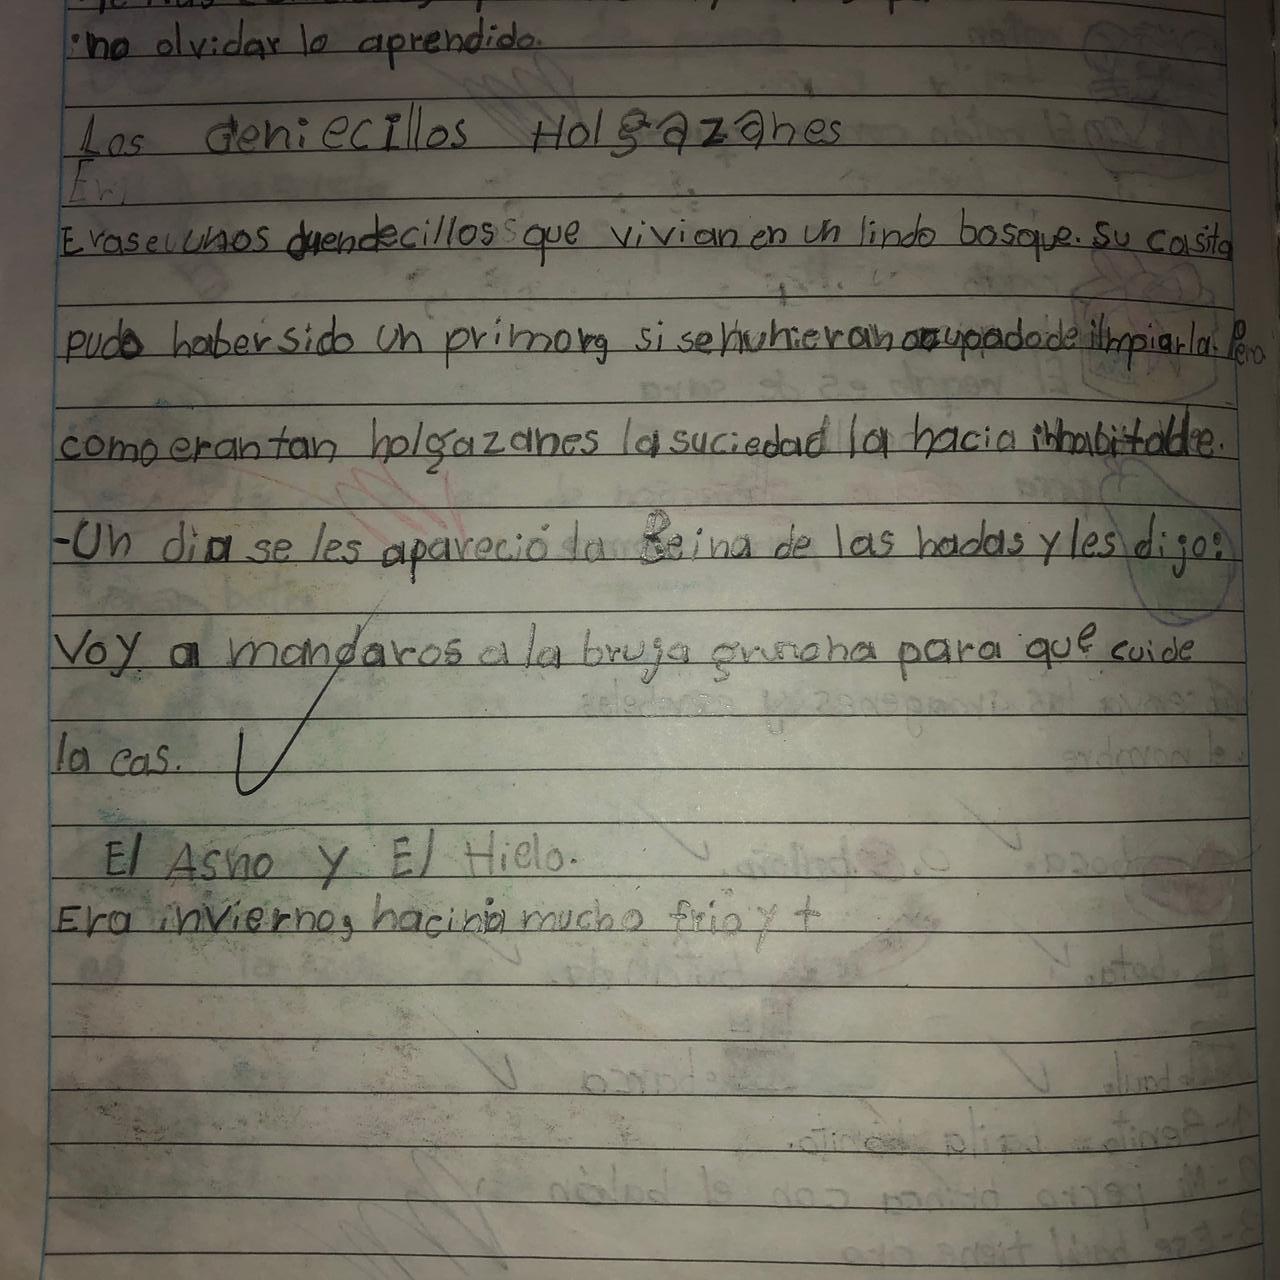 no olvidar lo aprendido.
Los Geniecillos Holgazanes
Er
Erase unos duendecillos que vivian en un lindo bosque. Su casita
pudo haber sido un primor, si se hubieran ocupado de limpiarla. Pero
como eran tan holgazanes la suciedad la hacia inhabitable.
-Un dia se les apareció la Reina de las hadas y les dijo:
Voy a mandaros a la bruja gruñona para que cuide
la cas.
El Asno y El Hielo.
Era invierno, hacina mucho frio y t